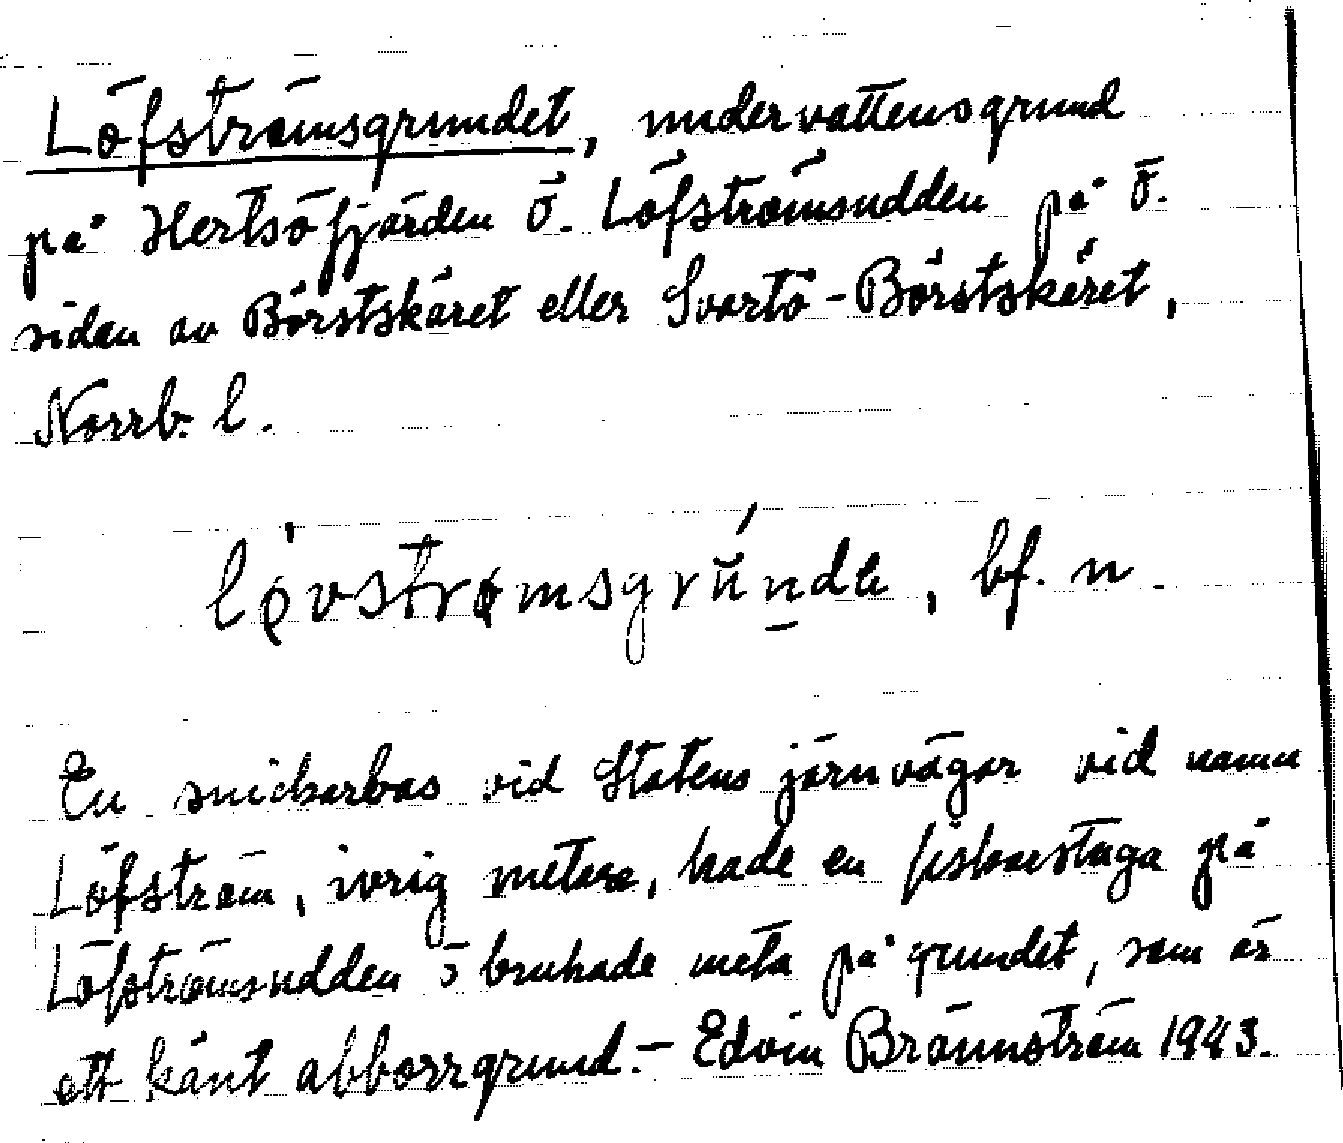 Löfströmsgrundet, undervattensgrund
på Hertsöfjärden ö. Löfströmsudden på ö.
sidan av Börstskäret eller Svartö-Börstskäret,
Norrb. l.
bf. n.
En snickarbas vid Statens järnvägar vid namn
Löfström, ivrig metare, hade en fiskarstuga på
Löfströmsudden o brukade meta på grundet, som är
ett känt abborrgrund. - Edvin Brännström 1943.